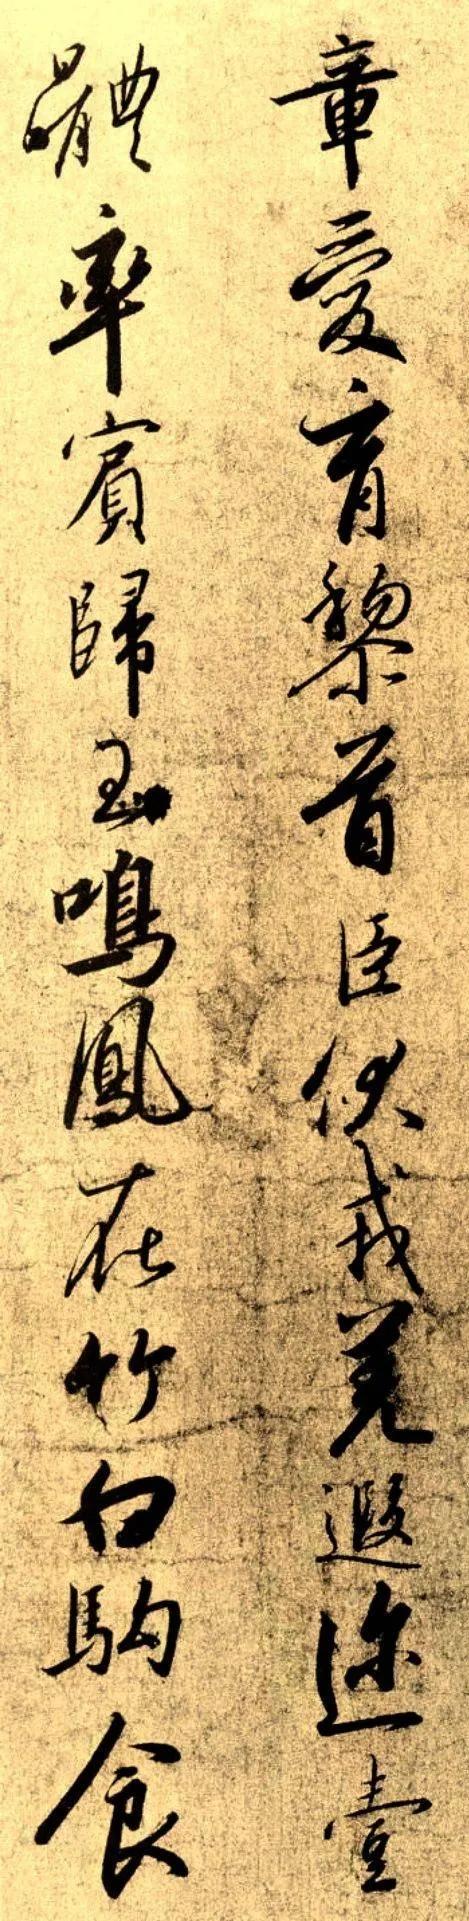 章愛育黎首臣伏戎羌遐迩壹
體率賓歸王鳴鳳在竹白駒食